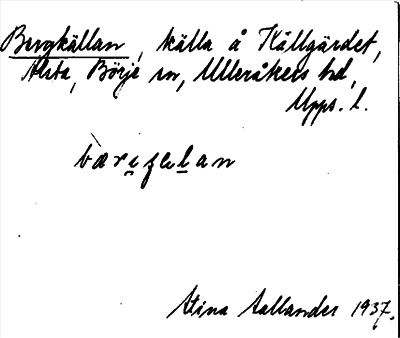 Bergkällan, källa å Källgärdet,
Altta, Börje sn, Ulleråkers hd,
Upps. l.
Stina Aallander 1937.